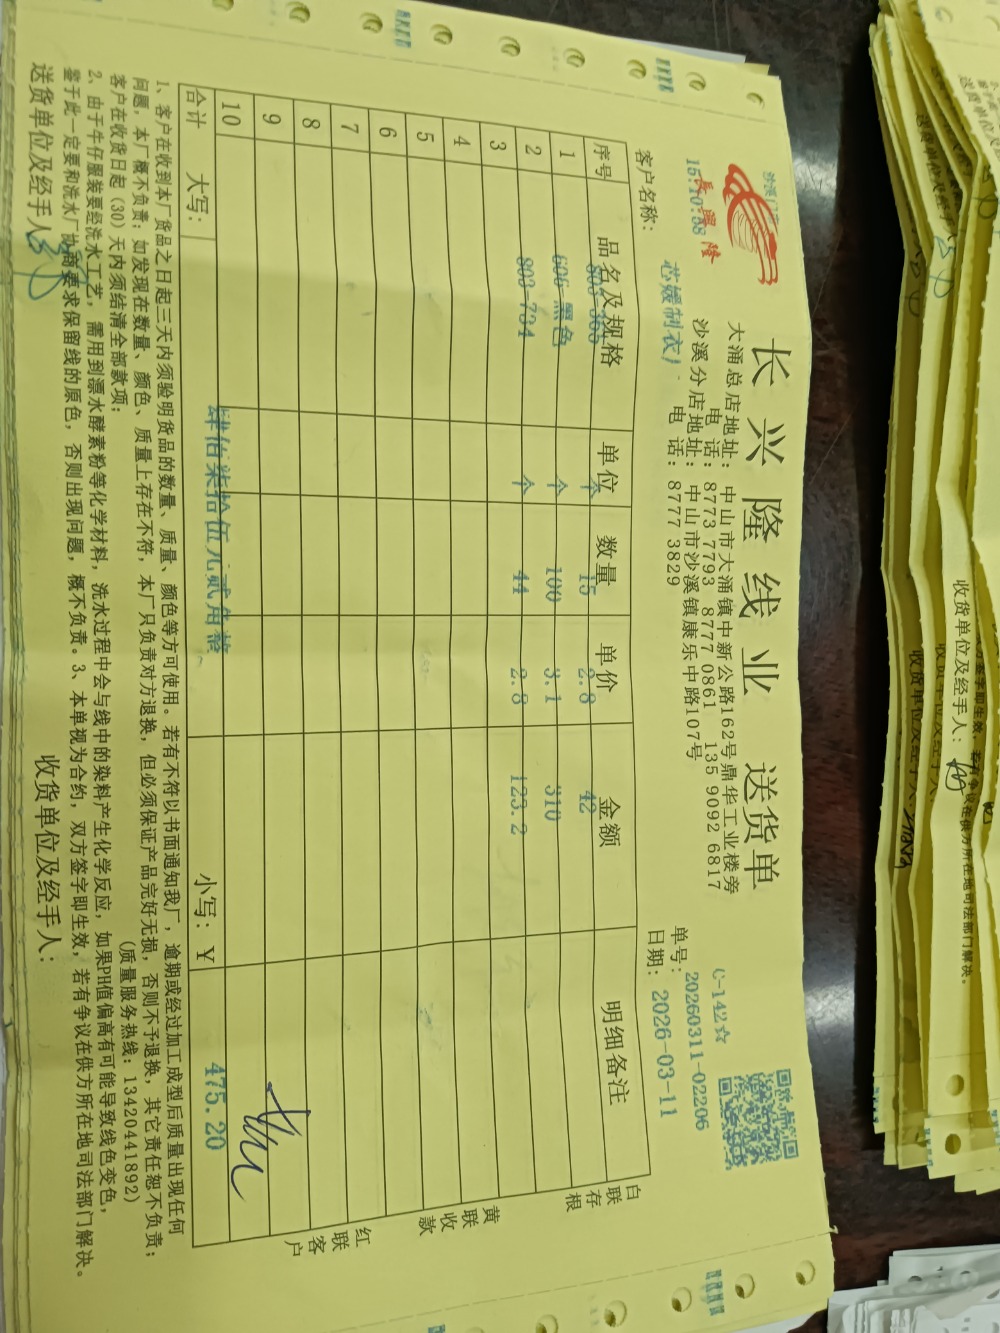 沙溪门市
15:10:58
長興隆
长兴隆线业 送货单
大涌总店地址：中山市大涌镇中新公路162号鼎华工业楼旁
电 话：8773 7793 8777 0861 135 9092 6817
沙溪分店地址：中山市沙溪镇康乐中路107号
电 话：8777 3829
C-142☆
单号：20260311-02206
日期：2026-03-11
客户名称：芯媛制衣厂
序号 品名及规格 单位 数量 单价 金额 明细备注
803-365 个 15 2.8 42
1 606-黑色 个 100 3.1 310
2 803-734 个 44 2.8 123.2
3
4
5
6
7
8
9
10
合计 大写：肆佰柒拾伍元贰角整 小写：¥ 475.20
白联存根
黄联收款
红联客户
1、客户在收到本厂货品之日起三天内须验明货品的数量、质量、颜色等方可使用。若有不符以书面通知我厂，逾期或经过加工成型后质量出现任何
问题，本厂概不负责；如发现在数量、颜色、质量上存在不符，本厂只负责对方退换，但必须保证产品完好无损，否则不予退换，其它责任恕不负责；
客户在收货日起（30）天内须结清全部款项； （质量服务热线：13420441892）
2、由于牛仔服装要经洗水工艺，需用到漂水酵素粉等化学材料，洗水过程中会与线中的染料产生化学反应，如果PH值偏高有可能导致线色变色，
鉴于此一定要和洗水厂协商要求保留线的原色，否则出现问题，概不负责。3、本单视为合约，双方签字即生效，若有争议在供方所在地司法部门解决。
送货单位及经手人： 收货单位及经手人：
收货单位及经手人：